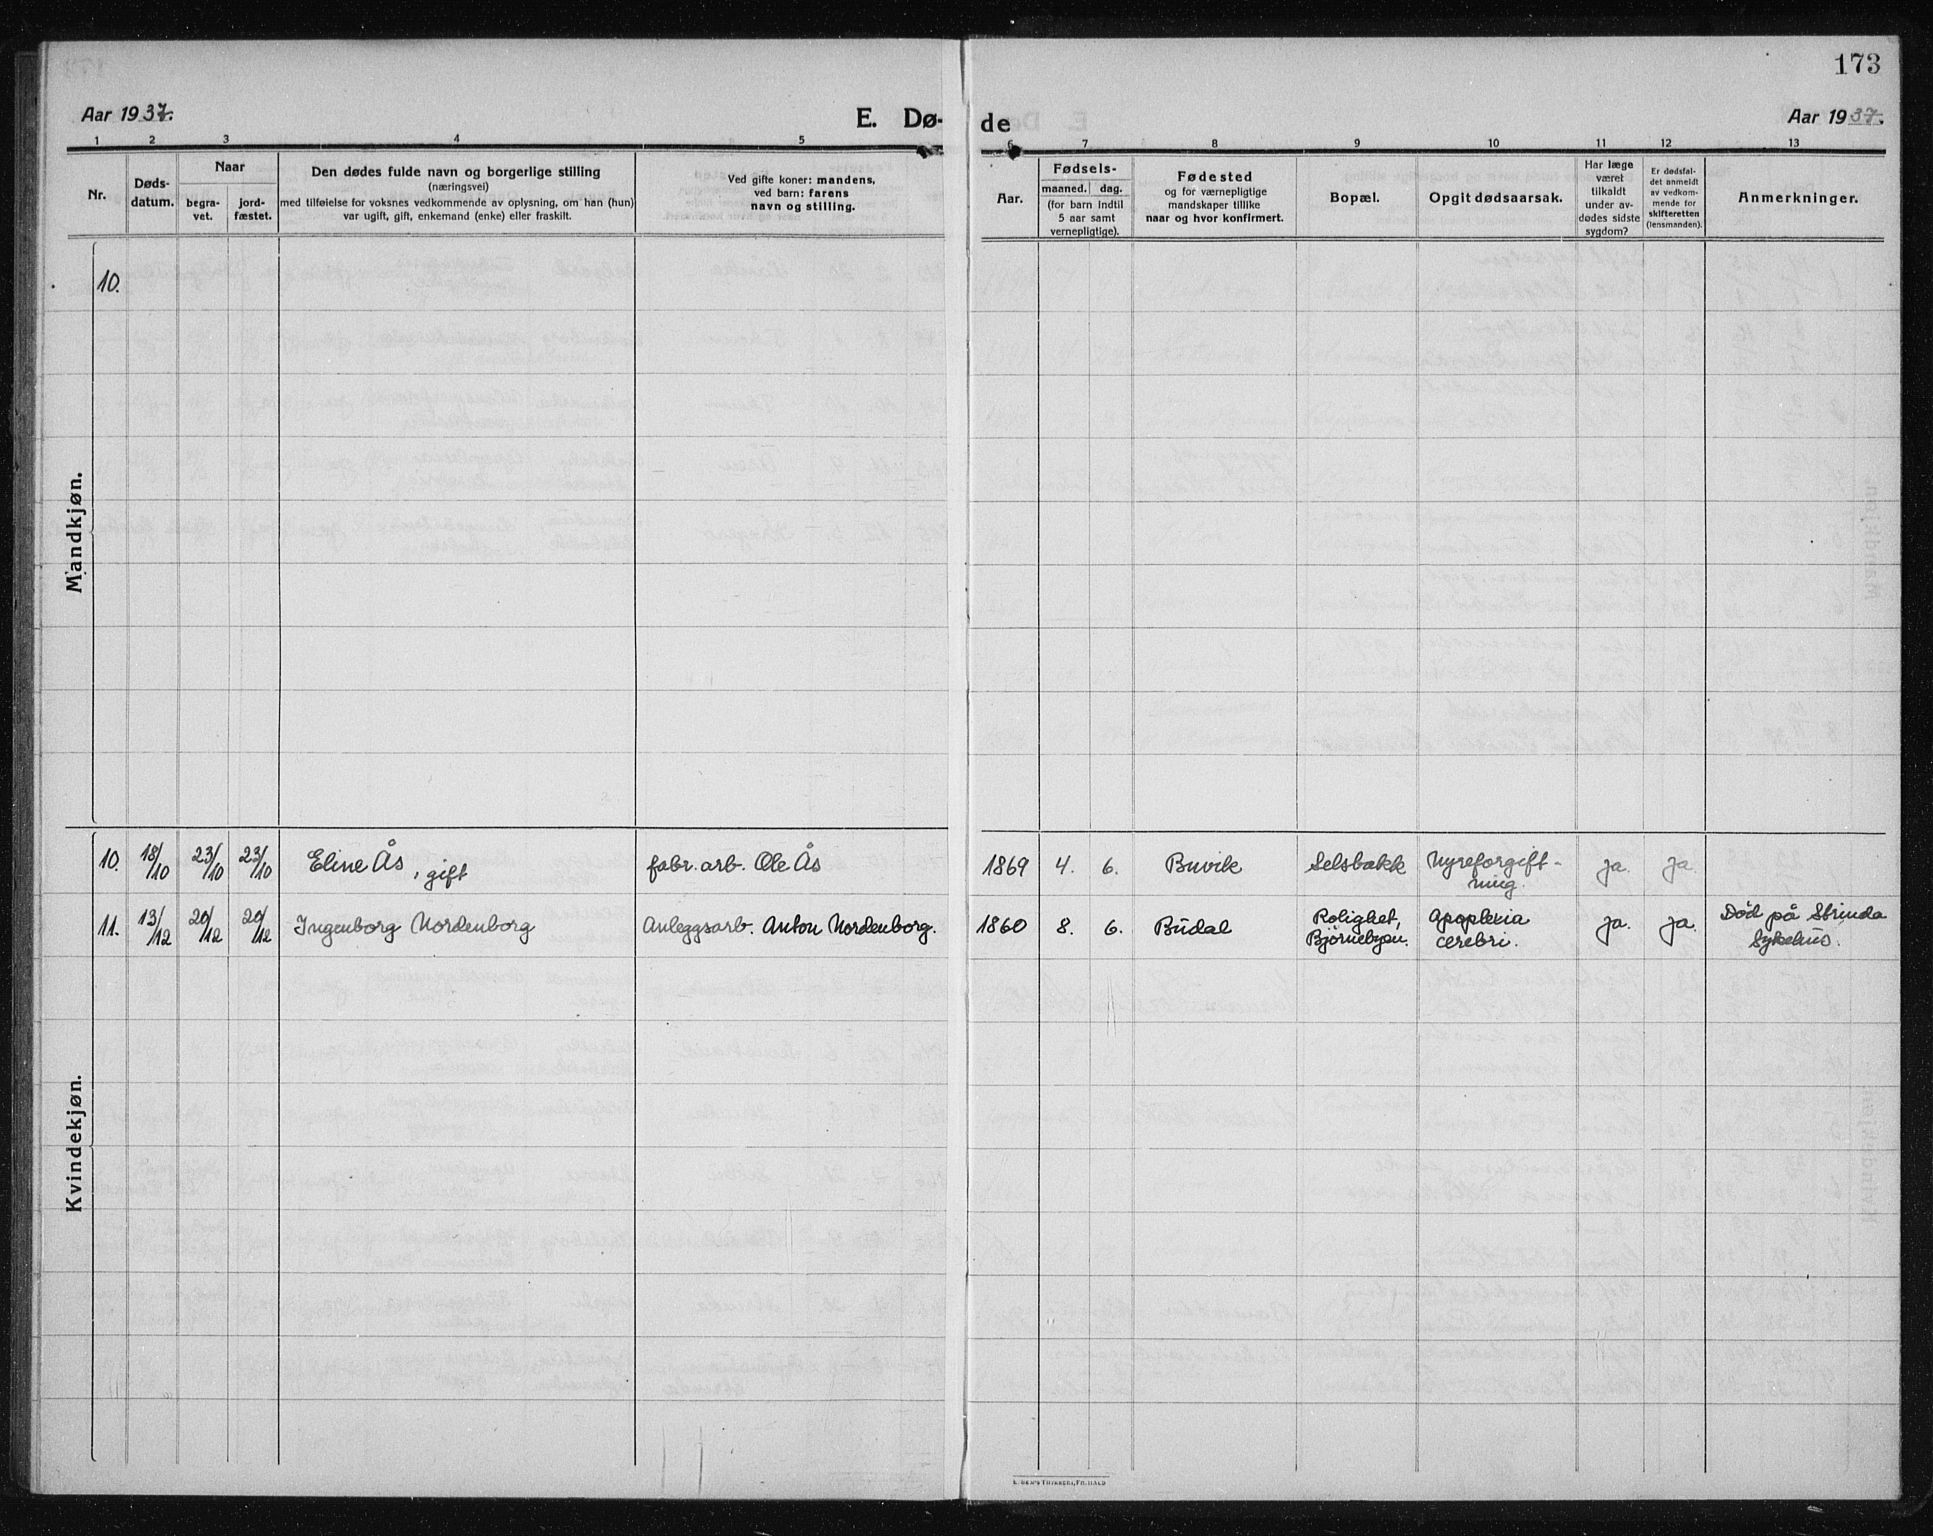 173
Aar 1937.
E. Dø-
de
Aar 1937.
1 2 3 4 5 6 7 8 9 10 11 12 13
Nr.
Døds-
datum.
Naar
begra-
vet.
jord-
fæstet.
Den dødes fulde navn og borgerlige stilling
(næringsvei)
med tilføielse for voksnes vedkommende av oplysning, om han (hun)
var ugift, gift, enkemand (enke) eller fraskilt.
Ved gifte koner: mandens,
ved barn: farens
navn og stilling.
Aar.
Fødsels-
maaned. dag.
(for barn indtil
5 aar samt
vernepligtige).
Fødested
og for værnepligtige
mandskaper tillike
naar og hvor konfirmert.
Bopæl.
Opgit dødsaarsak.
Har læge
været
tilkaldt
under av-
dødes sidste
sygdom?
Er dødsfal-
det anmeldt
av vedkom-
mende for
skifteretten
(lensmanden).
Anmerkninger.
Mandkjøn.
10.
Kvindekjøn.
10. 18/10 23/10 23/10 Eline Ås, gift fabr. arb. Ole Ås 1869 4. 6. Buvik Selsbakk Nyreforgift-
ning. ja. ja.
11. 13/12 20/12 20/12 Ingenborg Nordenborg Anleggsarb. Anton Nordenborg. 1860 8. 6. Budal Rolighet,
Bjørnebyen. Apoplexia
cerebri. ja. ja. Død på Strinda
Sykehus.